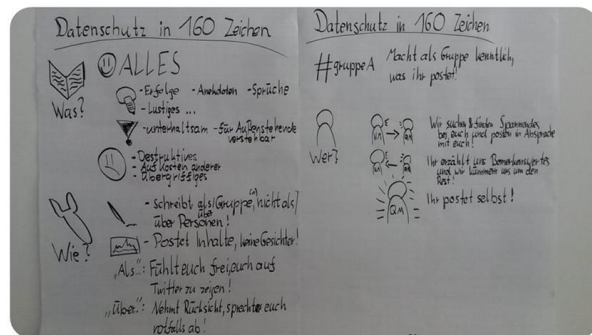 Datenschutz in 160 Zeichen
Was?
ALLES
- Erfolge - Anekdoten - Sprüche
- Lustiges ...
- unterhaltsam - für Außenstehende
verstehbar
- Destruktives
- Auf Kosten anderer
- Übergriffiges
Wie?
- schreibt als/über Gruppe(n), nicht als/
über Personen!
- Postet Inhalte, keine Gesichter!
"Als": Fühlt euch frei, euch auf
Twitter zu zeigen!
"Über": Nehmt Rücksicht, sprecht euch
notfalls ab!
Datenschutz in 160 Zeichen
#gruppeA
Macht als Gruppe kenntlich,
was ihr postet!
Wer?
QM
Wir suchen & finden Spannendes
bei euch und posten in Absprache
mit euch!
QM
Ihr erzählt uns Bemerkenswertes
und wir kümmern uns um den
Rest!
QM
Ihr postet selbst!